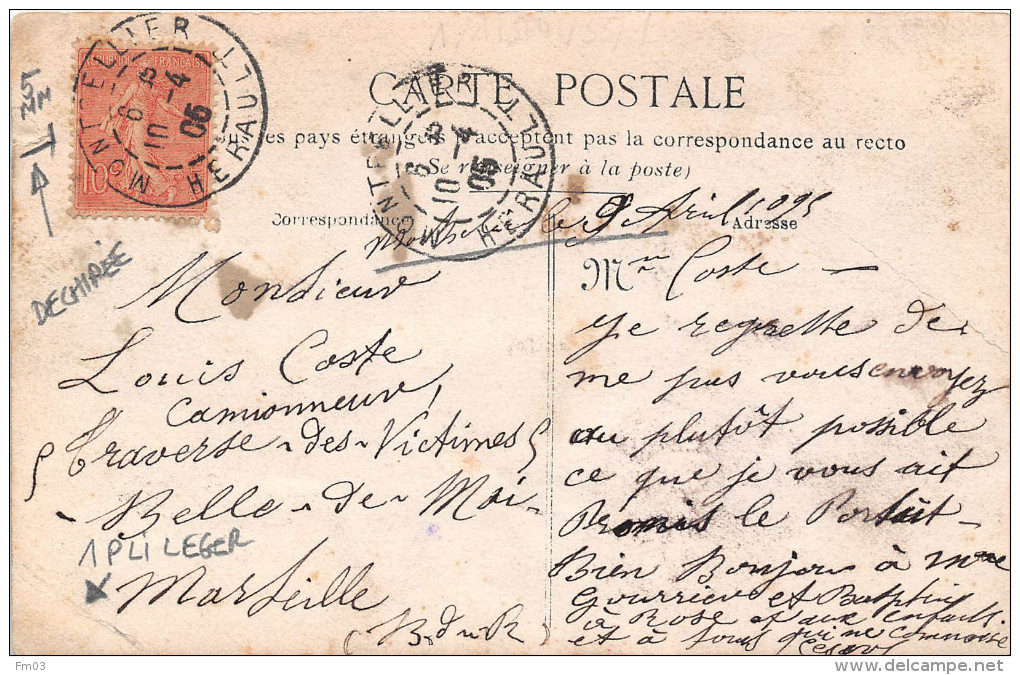 RÉPUBLIQUE FRANÇAISE
10
MONTPELLIER HÉRAULT
10
05
5 MM
DECHIRÉE
CARTE POSTALE
Tous les pays étrangers n'acceptent pas la correspondance au recto
(Se renseigner à la poste)
MONTPELLIER HÉRAULT
10
05
Correspondance
Adresse
le 9 Avril 1905
Monsieur
Louis Coste
Camionneur,
Traverse-des-Victimes
-Belle-de-Mai-
1 PLI LEGER
Marseille
(B. du R)
Mr Coste —
Je regrette de
me pas vous envoyez
au plutôt possible
ce que je vous ait
Promis le Portait-
Bien Bonjour à Mme
et
à Rose et aux enfants
et à tous qui me connaisse
Fm03
www.delcampe.net